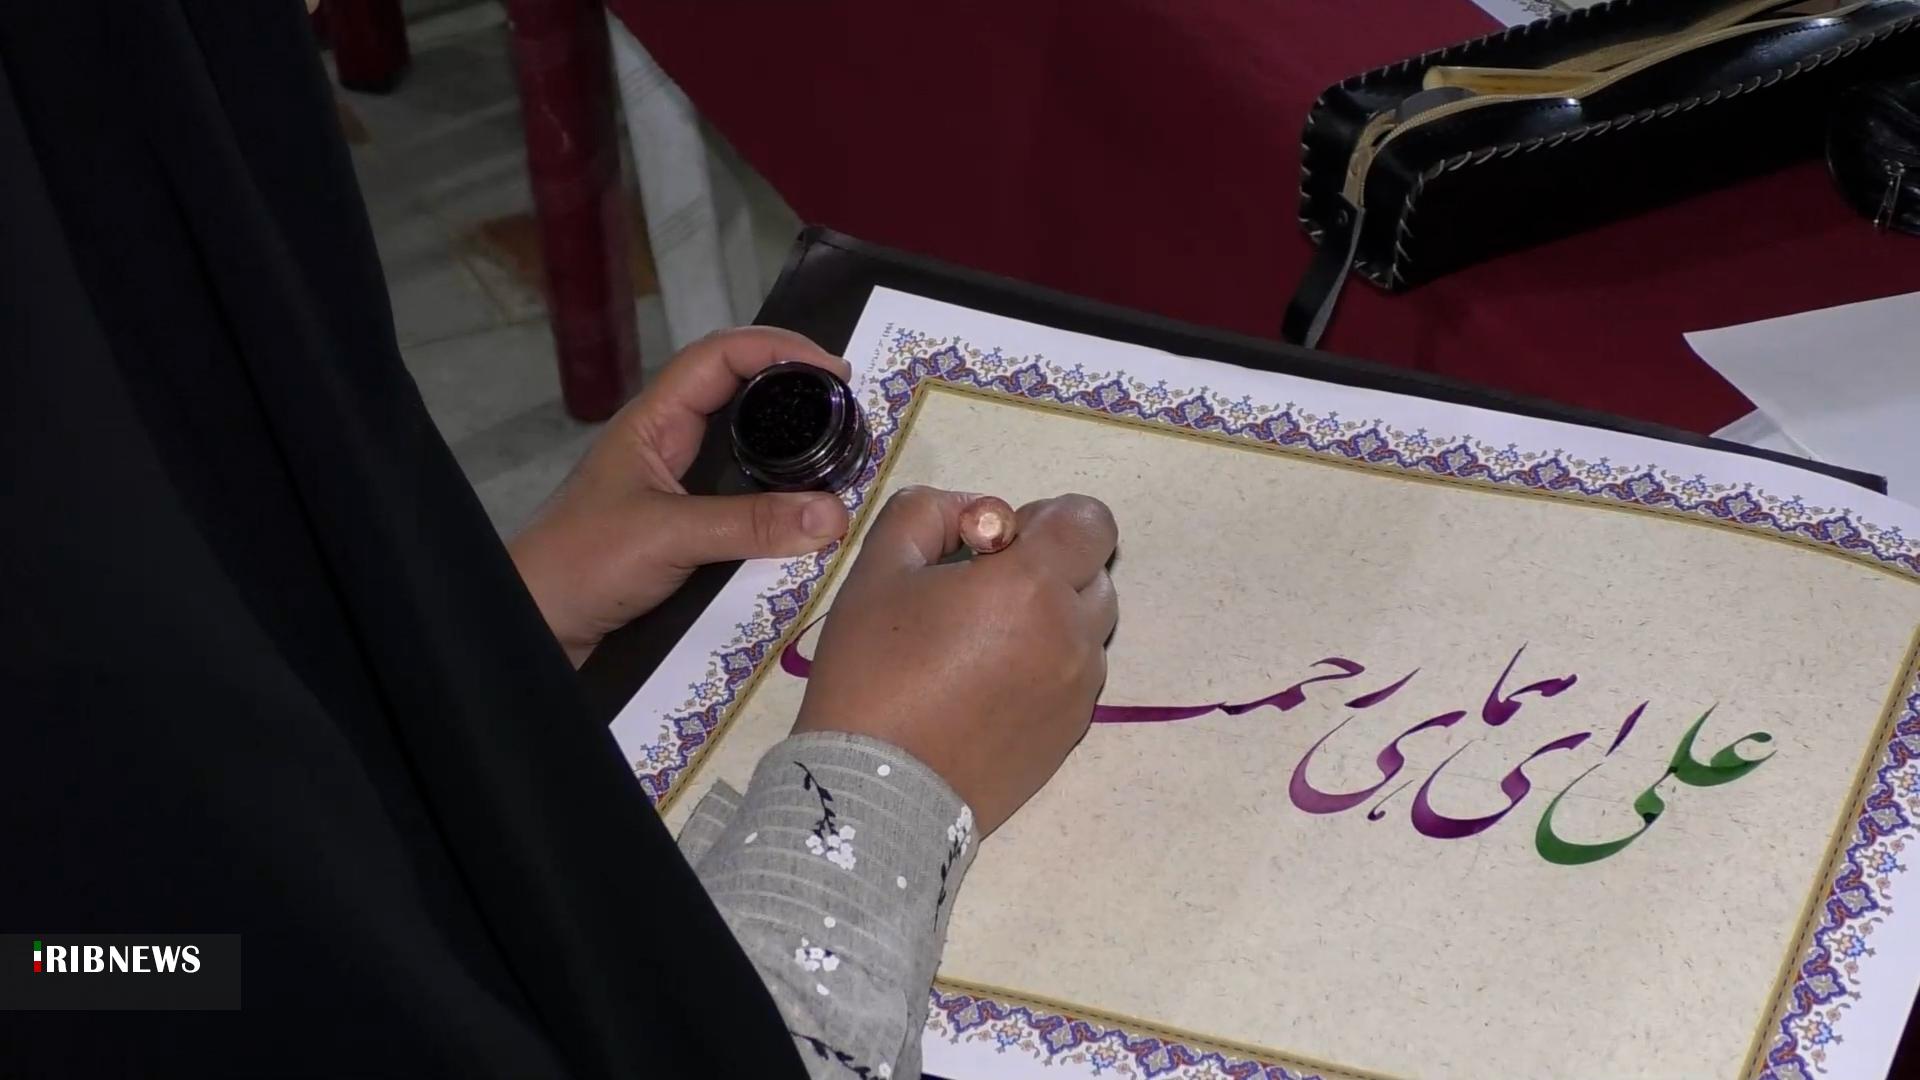 علی ای همای رحمت
IRIBNEWS